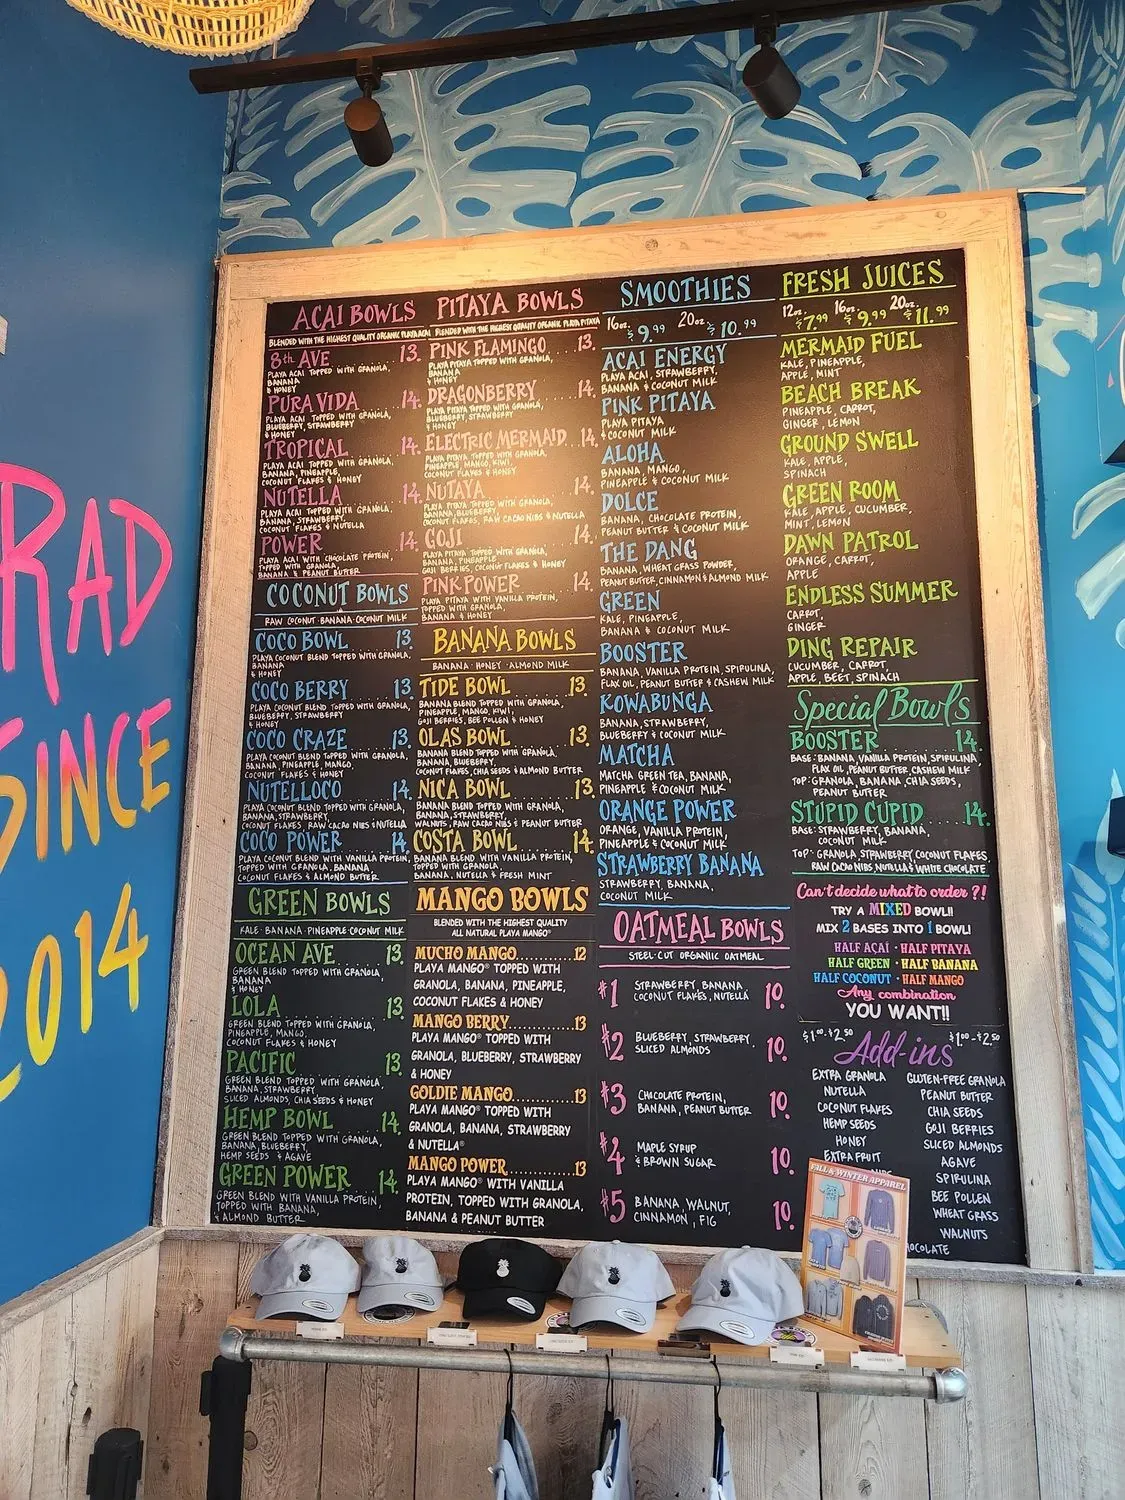 RAD
SINCE
2014
ACAI BOWLS
BLENDED WITH THE HIGHEST QUALITY ORGANIC PLAYA ACAI
8th AVE 13.
PLAYA ACAI TOPPED WITH GRANOLA,
BANANA
& HONEY
PURA VIDA 14.
PLAYA ACAI TOPPED WITH GRANOLA,
BLUEBERRY, STRAWBERRY
& HONEY
TROPICAL 14.
PLAYA ACAI TOPPED WITH GRANOLA,
BANANA, PINEAPPLE,
COCONUT FLAKES & HONEY
NUTELLA 14.
PLAYA ACAI TOPPED WITH GRANOLA,
BANANA, STRAWBERRY,
COCONUT FLAKES & NUTELLA
POWER 14.
PLAYA ACAI WITH CHOCOLATE PROTEIN,
TOPPED WITH GRANOLA,
BANANA & PEANUT BUTTER
COCONUT BOWLS
RAW COCONUT·BANANA·COCONUT MILK
COCO BOWL 13.
PLAYA COCONUT BLEND TOPPED WITH GRANOLA,
BANANA
& HONEY
COCO BERRY 13.
PLAYA COCONUT BLEND TOPPED WITH GRANOLA,
BLUEBERRY, STRAWBERRY
& HONEY
COCO CRAZE 13.
PLAYA COCONUT BLEND TOPPED WITH GRANOLA,
BANANA, PINEAPPLE, MANGO,
COCONUT FLAKES & HONEY
NUTELLOCO 14.
PLAYA COCONUT BLEND TOPPED WITH GRANOLA,
BANANA, STRAWBERRY,
COCONUT FLAKES, RAW CACAO NIBS & NUTELLA
COCO POWER 14.
PLAYA COCONUT BLEND WITH VANILLA PROTEIN,
TOPPED WITH GRANOLA, BANANA,
COCONUT FLAKES & ALMOND BUTTER
GREEN BOWLS
KALE·BANANA·PINEAPPLE·COCONUT MILK
OCEAN AVE 13.
GREEN BLEND TOPPED WITH GRANOLA,
BANANA
& HONEY
LOLA 13.
GREEN BLEND TOPPED WITH GRANOLA,
PINEAPPLE, MANGO,
COCONUT FLAKES & HONEY
PACIFIC 13.
GREEN BLEND TOPPED WITH GRANOLA,
BANANA, STRAWBERRY
SLICED ALMONDS, CHIA SEEDS & HONEY
HEMP BOWL 14.
GREEN BLEND TOPPED WITH GRANOLA,
BANANA, BLUEBERRY,
HEMP SEEDS & AGAVE
GREEN POWER 14.
GREEN BLEND WITH VANILLA PROTEIN,
TOPPED WITH BANANA,
& ALMOND BUTTER
PITAYA BOWLS
BLENDED WITH THE HIGHEST QUALITY ORGANIC PLAYA PITAYA
PINK FLAMINGO 13.
PLAYA PITAYA TOPPED WITH GRANOLA,
BANANA
& HONEY
DRAGONBERRY 14.
PLAYA PITAYA TOPPED WITH GRANOLA,
BLUEBERRY, STRAWBERRY
& HONEY
ELECTRIC MERMAID 14.
PLAYA PITAYA TOPPED WITH GRANOLA,
PINEAPPLE, MANGO, KIWI,
COCONUT FLAKES & HONEY
NUTAYA 14.
PLAYA PITAYA TOPPED WITH GRANOLA,
BANANA, BLUEBERRY,
COCONUT FLAKES, RAW CACAO NIBS & NUTELLA
GOJI 14.
PLAYA PITAYA TOPPED WITH GRANOLA,
BANANA, PINEAPPLE
GOJI BERRIES, COCONUT FLAKES & HONEY
PINK POWER 14.
PLAYA PITAYA WITH VANILLA PROTEIN,
TOPPED WITH GRANOLA,
BANANA & HONEY
BANANA BOWLS
BANANA·HONEY·ALMOND MILK
TIDE BOWL 13.
BANANA BLEND TOPPED WITH GRANOLA,
PINEAPPLE, MANGO, KIWI,
GOJI BERRIES, BEE POLLEN & HONEY
OLAS BOWL 13.
BANANA BLEND TOPPED WITH GRANOLA,
BANANA, BLUEBERRY,
COCONUT FLAKES, CHIA SEEDS & ALMOND BUTTER
NICA BOWL 13.
BANANA BLEND TOPPED WITH GRANOLA,
BANANA, STRAWBERRY,
WALNUTS, RAW CACAO NIBS & PEANUT BUTTER
COSTA BOWL 14.
BANANA BLEND WITH VANILLA PROTEIN,
TOPPED WITH GRANOLA,
BANANA, NUTELLA & FRESH MINT
MANGO BOWLS
BLENDED WITH THE HIGHEST QUALITY
ALL NATURAL PLAYA MANGO®
MUCHO MANGO 12
PLAYA MANGO® TOPPED WITH
GRANOLA, BANANA, PINEAPPLE,
COCONUT FLAKES & HONEY
MANGO BERRY 13
PLAYA MANGO® TOPPED WITH
GRANOLA, BLUEBERRY, STRAWBERRY
& HONEY
GOLDIE MANGO 13
PLAYA MANGO® TOPPED WITH
GRANOLA, BANANA, STRAWBERRY
& NUTELLA®
MANGO POWER 13
PLAYA MANGO® WITH VANILLA
PROTEIN, TOPPED WITH GRANOLA,
BANANA & PEANUT BUTTER
SMOOTHIES
16oz. $9.99 20oz. $10.99
ACAI ENERGY
PLAYA ACAI, STRAWBERRY,
BANANA & COCONUT MILK
PINK PITAYA
PLAYA PITAYA
& COCONUT MILK
ALOHA
BANANA, MANGO,
PINEAPPLE & COCONUT MILK
DOLCE
BANANA, CHOCOLATE PROTEIN,
PEANUT BUTTER & COCONUT MILK
THE DANG
BANANA, WHEAT GRASS POWDER,
PEANUT BUTTER, CINNAMON & ALMOND MILK
GREEN
KALE, PINEAPPLE,
BANANA & COCONUT MILK
BOOSTER
BANANA, VANILLA PROTEIN, SPIRULINA,
FLAX OIL, PEANUT BUTTER & CASHEW MILK
KOWABUNGA
BANANA, STRAWBERRY,
BLUEBERRY & COCONUT MILK
MATCHA
MATCHA GREEN TEA, BANANA,
PINEAPPLE & COCONUT MILK
ORANGE POWER
ORANGE, VANILLA PROTEIN,
PINEAPPLE & COCONUT MILK
STRAWBERRY BANANA
STRAWBERRY, BANANA,
COCONUT MILK
OATMEAL BOWLS
STEEL-CUT ORGANIC OATMEAL
#1 STRAWBERRY, BANANA
COCONUT FLAKES, NUTELLA 10.
#2 BLUEBERRY, STRAWBERRY,
SLICED ALMONDS 10.
#3 CHOCOLATE PROTEIN,
BANANA, PEANUT BUTTER 10.
#4 MAPLE SYRUP
& BROWN SUGAR 10.
#5 BANANA, WALNUT,
CINNAMON, FIG 10.
FRESH JUICES
12oz. $7.99 16oz. $9.99 20oz. $11.99
MERMAID FUEL
KALE, PINEAPPLE,
APPLE, MINT
BEACH BREAK
PINEAPPLE, CARROT,
GINGER, LEMON
GROUND SWELL
KALE, APPLE,
SPINACH
GREEN ROOM
KALE, APPLE, CUCUMBER,
MINT, LEMON
DAWN PATROL
ORANGE, CARROT,
APPLE
ENDLESS SUMMER
CARROT,
GINGER
DING REPAIR
CUCUMBER, CARROT,
APPLE, BEET, SPINACH
Special Bowls
BOOSTER 14.
BASE: BANANA, VANILLA PROTEIN, SPIRULINA,
FLAX OIL, PEANUT BUTTER, CASHEW MILK
TOP: GRANOLA, BANANA, CHIA SEEDS,
PEANUT BUTTER
STUPID CUPID 14.
BASE: STRAWBERRY, BANANA,
COCONUT MILK
TOP: GRANOLA, STRAWBERRY, COCONUT FLAKES,
RAW CACAO NIBS, NUTELLA & WHITE CHOCOLATE
Can't decide what to order?!
TRY A MIXED BOWL!!
MIX 2 BASES INTO 1 BOWL!
HALF ACAÍ · HALF PITAYA
HALF GREEN · HALF BANANA
HALF COCONUT · HALF MANGO
Any combination
YOU WANT!!
$1.00-$2.50 $1.00-$2.50
Add-ins
EXTRA GRANOLA
NUTELLA
COCONUT FLAKES
HEMP SEEDS
HONEY
EXTRA FRUIT
GLUTEN-FREE GRANOLA
PEANUT BUTTER
CHIA SEEDS
GOJI BERRIES
SLICED ALMONDS
AGAVE
SPIRULINA
BEE POLLEN
WHEAT GRASS
WALNUTS
OCOLATE
FALL & WINTER APPAREL